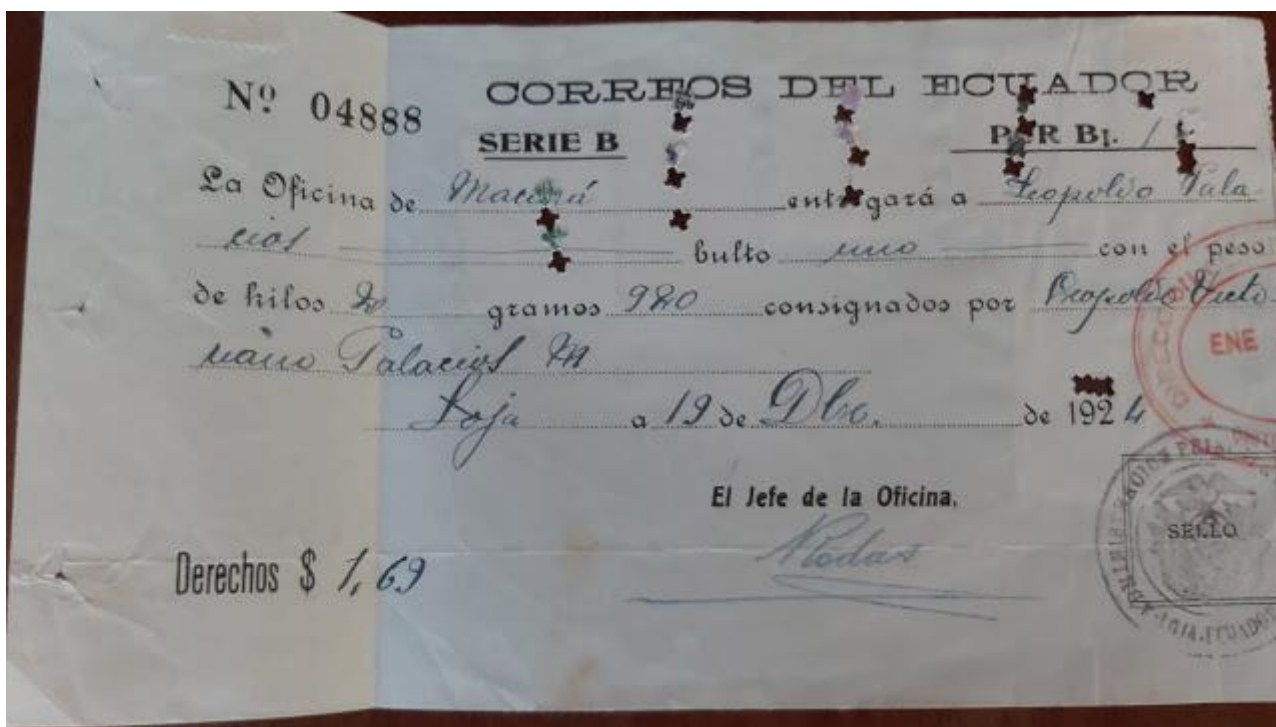 Nº 04888
CORREOS DEL ECUADOR
SERIE B
POR Bl. /
La Oficina de Macará entregará a Leopoldo Pala
cios bulto uno con el peso
de kilos 20 gramos 920 consignados por Leopoldo Victo
riano Palacios M
Loja a 19 de Dbre. de 1924
El Jefe de la Oficina,
Rodas
Derechos $ 1,69
ENE
SELLO
LOJA-ECUADOR